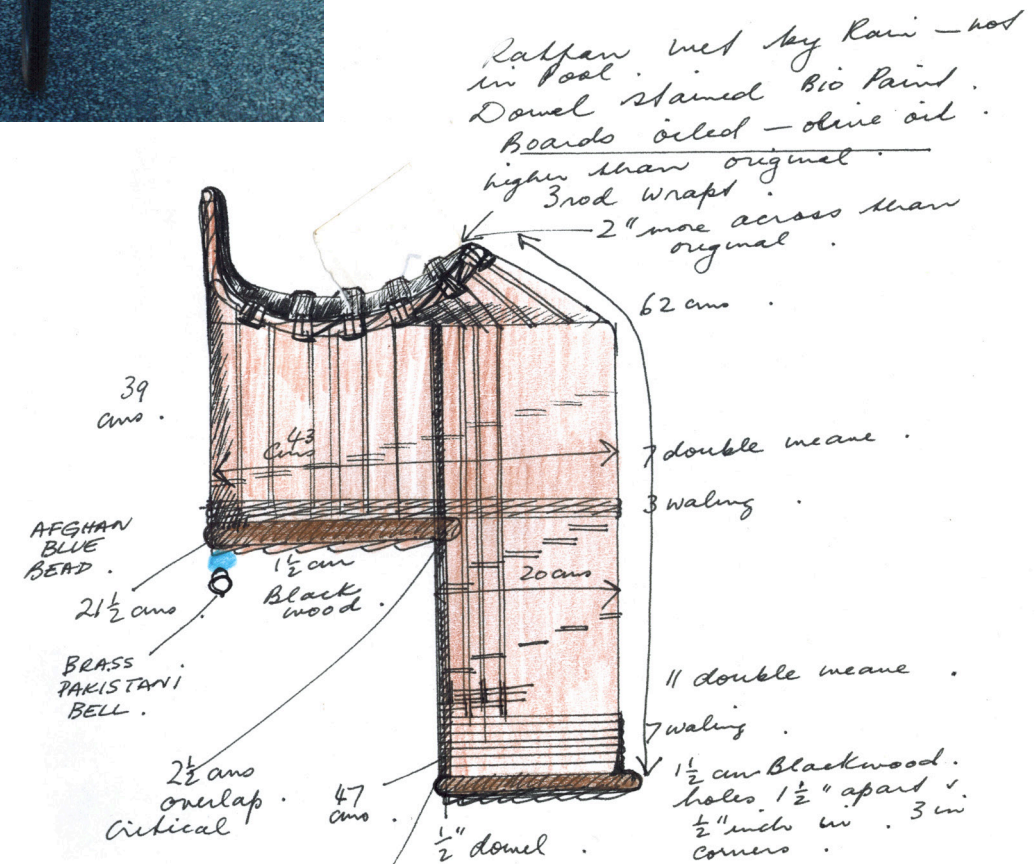 Rattan wet by Rain – not
in Pool.
Dowel stained Bio Paint.
Boards oiled – olive oil.
higher than original.
3 rod wraps.
2" more across than
original.
62 cms.
39
cms.
43
cms
7 double weave.
3 waling.
AFGHAN
BLUE
BEAD.
21½ cms.
1½ cm
Black
wood.
20 cms
BRASS
PAKISTANI
BELL.
11 double weave.
7 waling.
2½ cms
overlap.
Critical
47
cms.
½" dowel.
1½ cm Blackwood.
holes 1½" apart &
½" inch in. 3 in
corners.